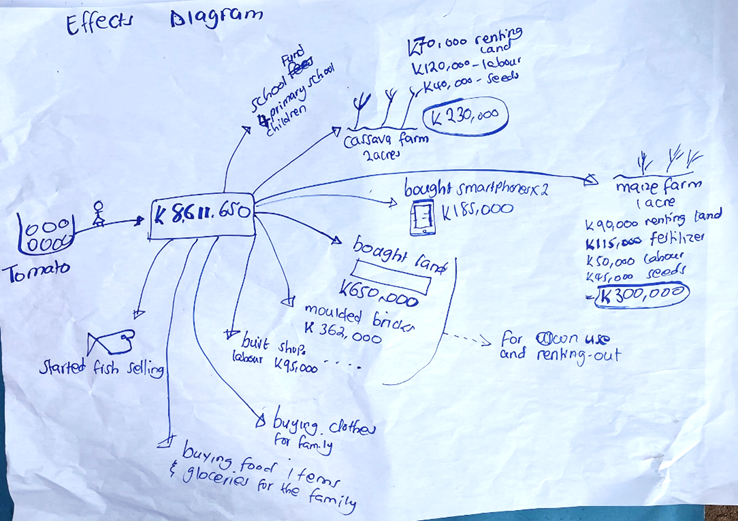 Effects Diagram
Fund
school fees
4 primary school
children
K70,000 renting
land
K120,000 - labour
K40,000 - seeds
K 230,000
cassava farm
2 acres
maize farm
1 acre
K90,000 renting land
K115,000 fetilizer
K50,000 labour
K45,000 seeds
= K300,000
bought smartphones x 2
K185,000
K 8,611.650
Tomato
bought land
K650,000
moulded bricks
K 362,000
built shops
labour K95,000 ....
for own use
and renting-out
started fish selling
buying clothes
for family
buying food items
& gloceries for the family